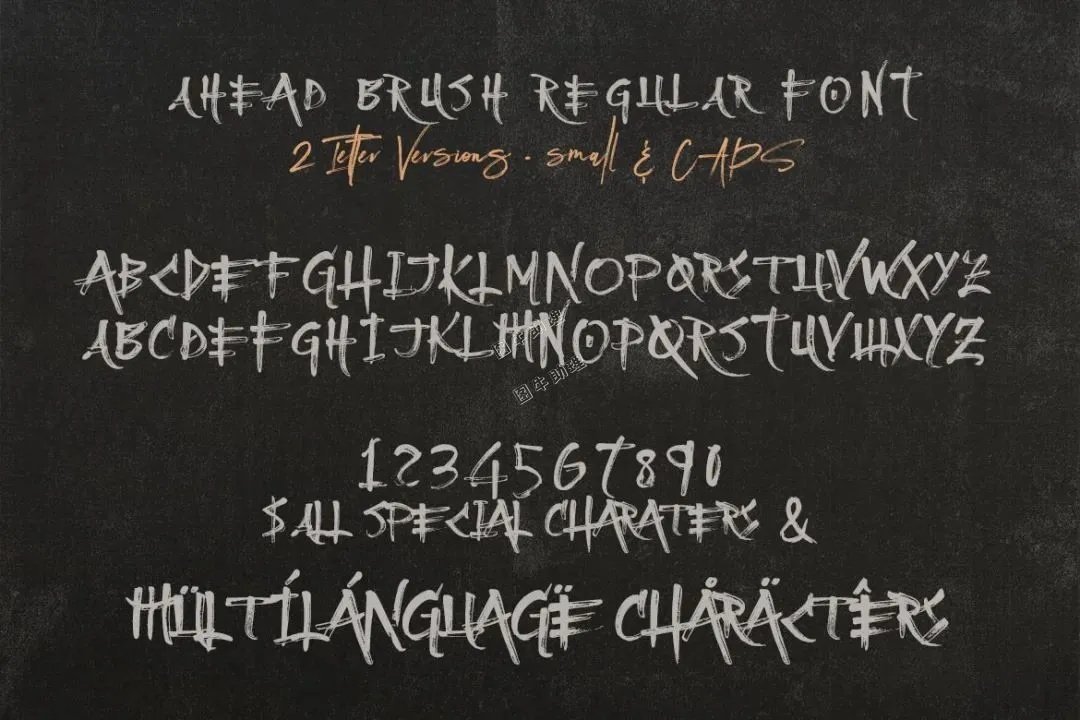 AHEAD BRUSH REGULAR FONT
2 Letter Versions . small & CAPS
ABCDEFGHIJKLMNOPQRSTUVWXYZ
ABCDEFGHIJKLMNOPQRSTUVWXYZ
图牛助理
1234567890
$ ALL SPECIAL CHARATERS &
MÜLTÍLÁNGUAGË CHÅRÄCTÊRS